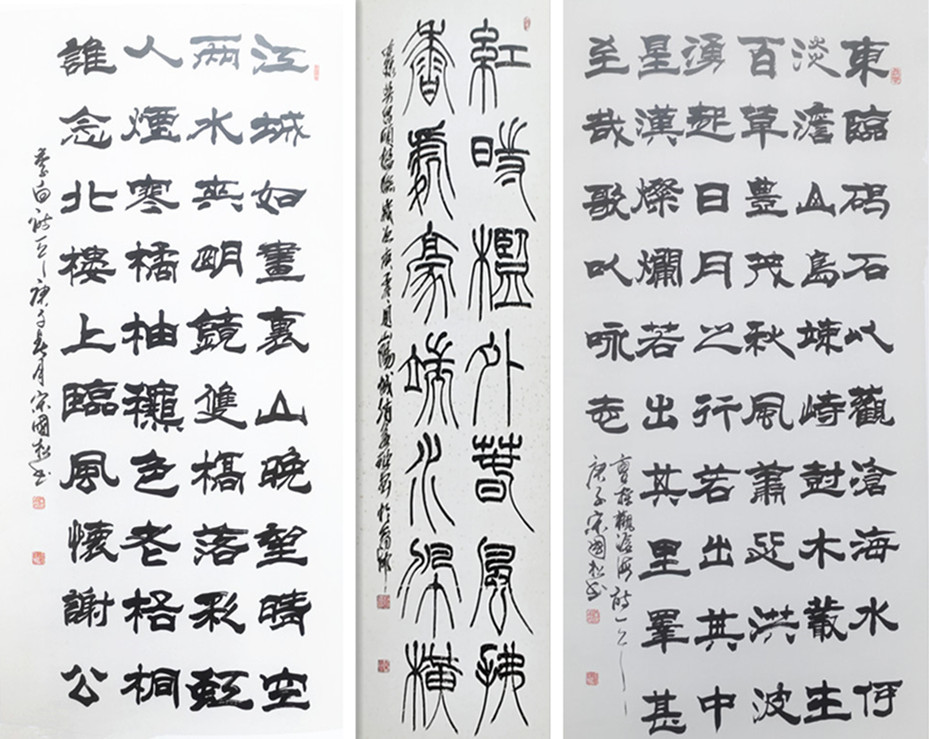 江城如畫裏山晚望晴空
兩水夾明鏡雙橋落彩虹
人煙寒橘柚穐色老梧桐
誰念北樓上臨風懷謝公
李白詩一首庚子春月宋國
紅時檻外春風拂
香處豪端水橫
東臨碣石以觀滄海水何
淡澹山島竦峙樹木叢生
百草豐茂秋風蕭瑟洪波
湧起日月之行若出其中
星漢燦爛若出其里幸甚
至哉歌以咏志
曹操觀滄海詩一首
庚子宋國